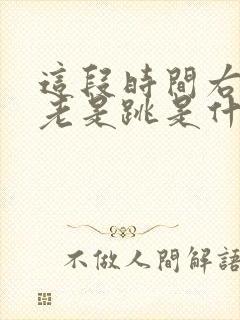 這段時間右
老是跳是什
不做人間解語